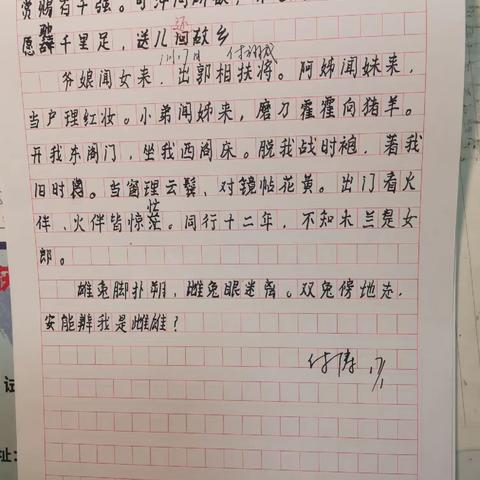 赏赐百千强。可汗问所欲，
愿驰千里足，送儿还故乡
爷娘闻女来，出郭相扶将。阿姊闻妹来，
当户理红妆。小弟闻姊来，磨刀霍霍向猪羊。
开我东阁门，坐我西阁床。脱我战时袍，着我
旧时裳。当窗理云鬓、对镜帖花黄。出门看火
伴、火伴皆惊茫。同行十二年，不知木兰是女
郎。
雄兔脚扑朔，雌兔眼迷离。双兔傍地走，
安能辨我是雌雄？